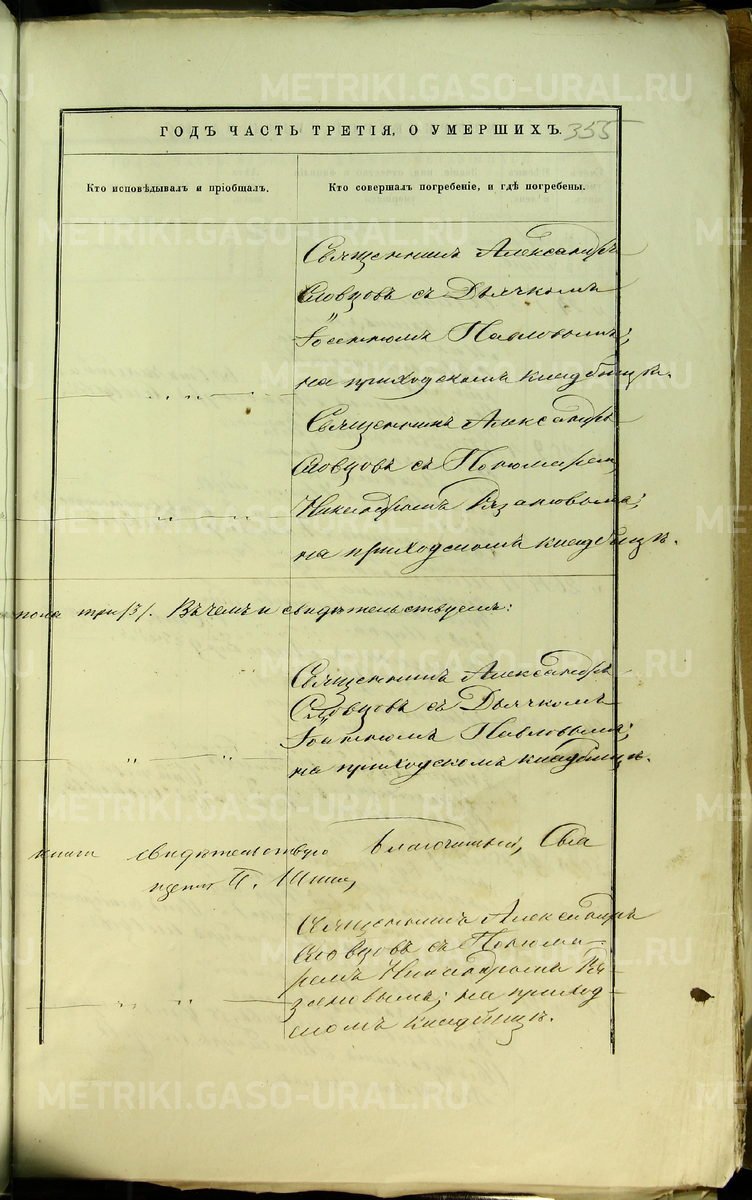 METRIKI.GASO-URAL.RU
ГОДЪ ЧАСТЬ ТРЕТІЯ, О УМЕРШИХЪ. 355
Кто исповѣдывалъ и пріобщалъ.
Кто совершалъ погребеніе, и гдѣ погребены.
Священникъ Александръ
Словцовъ съ Дьячкомъ
Павловымъ;
на приходскомъ кладбищѣ.
Священникъ Александръ
Словцовъ съ Пономаремъ
Никандромъ Рязановымъ;
на приходскомъ кладбищѣ.
пола три /3/. Въ чемъ и свидѣтельствуемъ:
Священникъ Александръ
Словцовъ съ Дьячкомъ
Павловымъ;
на приходскомъ кладбищѣ.
книги свидѣтельствую Благочинный, Свя
щенникъ П.
Священникъ Александръ
Словцовъ съ Понома-
ремъ Никандромъ Ря-
зановымъ; на приход-
скомъ кладбищѣ.